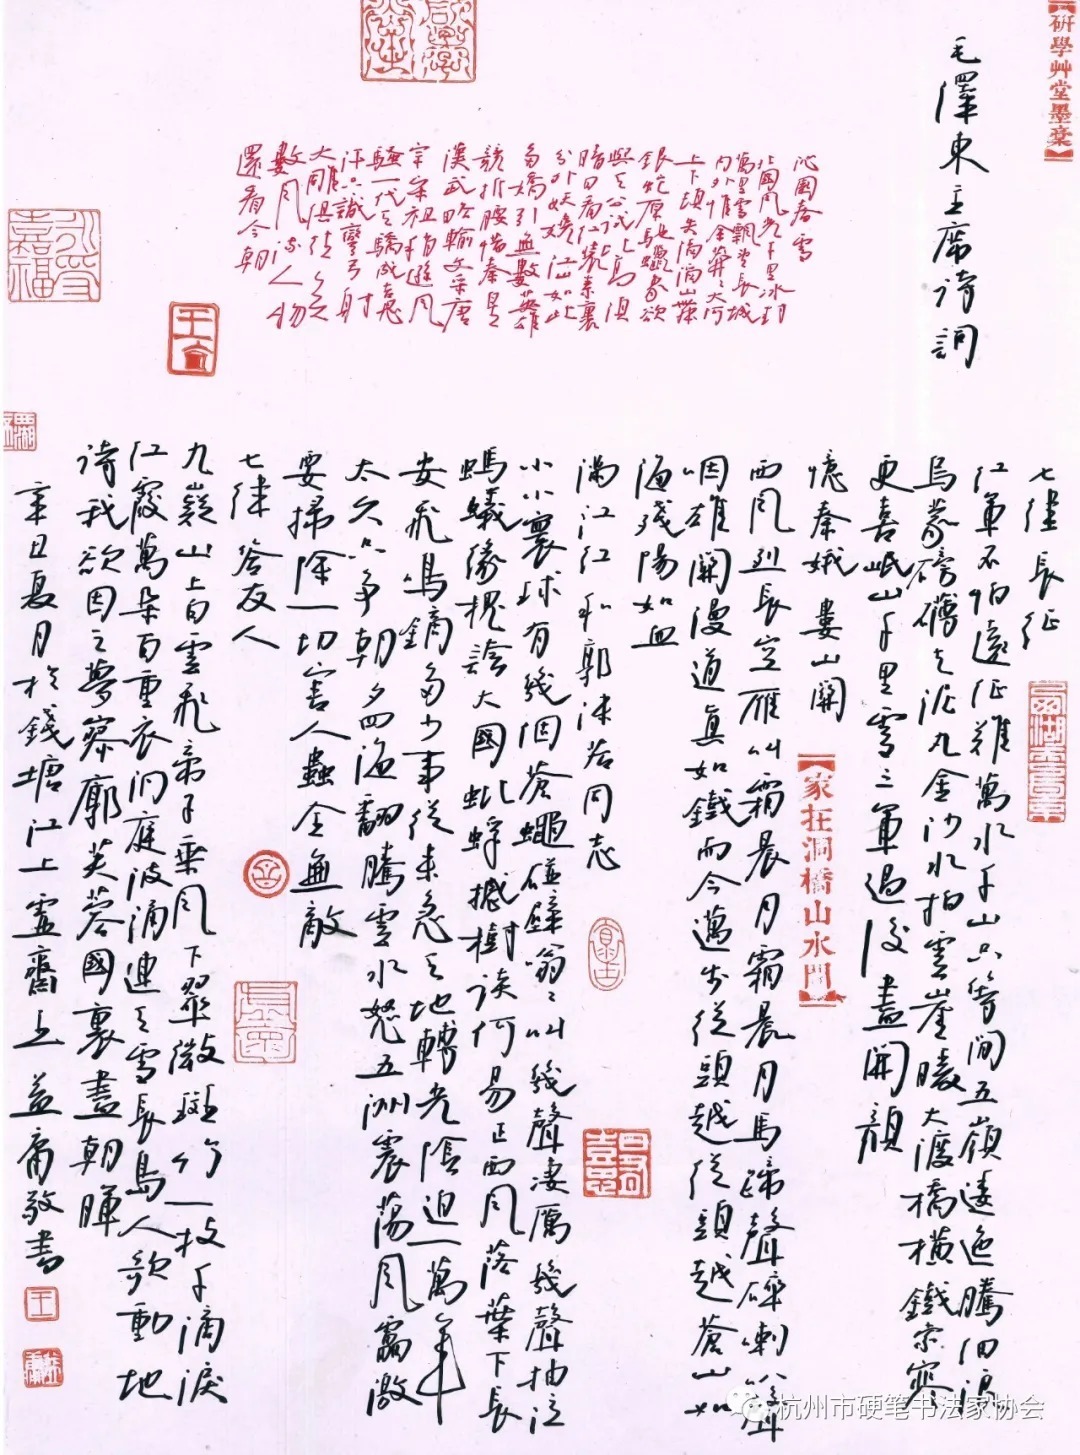 研學艸堂墨稾
毛澤東主席诗詞
沁園春雪
北國風光千里冰封
萬里雪飄望長城
内外惟余莽々大河
上下頓失滔滔山舞
銀蛇原馳蠟象欲
與天公试比高須
晴日看红裝素裹
分外妖嬈江山如此
多嬌引無數英雄
競折腰惜秦皇
漢武略輸文采唐
宗宋祖稍遜風
騷一代天驕成吉思
汗只識彎弓射
大雕俱往矣
數風流人物
還看今朝
七律長征
红軍不怕遠征難萬水千山只等閒五嶺逶迤騰细浪
烏蒙磅礴走泥丸金沙水拍雲崖暖大渡橋橫鐵索寒
更喜岷山千里雪三軍過後盡開顏
憶秦娥 婁山關
西風烈長空雁叫霜晨月霜晨月馬蹄聲碎喇叭聲
咽雄關漫道真如鐵而今邁步從頭越從頭越蒼山如
海殘陽如血
满江红和郭沫若同志
小小寰球有幾個蒼蠅碰壁嗡々叫幾聲凄厲幾聲抽泣
螞蟻緣槐誇大國蚍蜉撼樹谈何易正西風落葉下長
安飛鳴鏑多少事從来急天地轉光陰迫一萬年
太久只争朝夕四海翻騰雲水怒五洲震荡風雷激
要掃除一切害人蟲全無敵
七律答友人
九嶷山上白雲飛帝子乘風下翠微斑竹一枝千滴淚
红霞萬朵百重衣洞庭波涌連天雪長島人歌動地
诗我欲因之夢寥廓芙蓉國裏盡朝暉
辛丑夏月於錢塘江上靈齋上益庸敬書
家在洞橋山水間
杭州市硬笔书法家协会